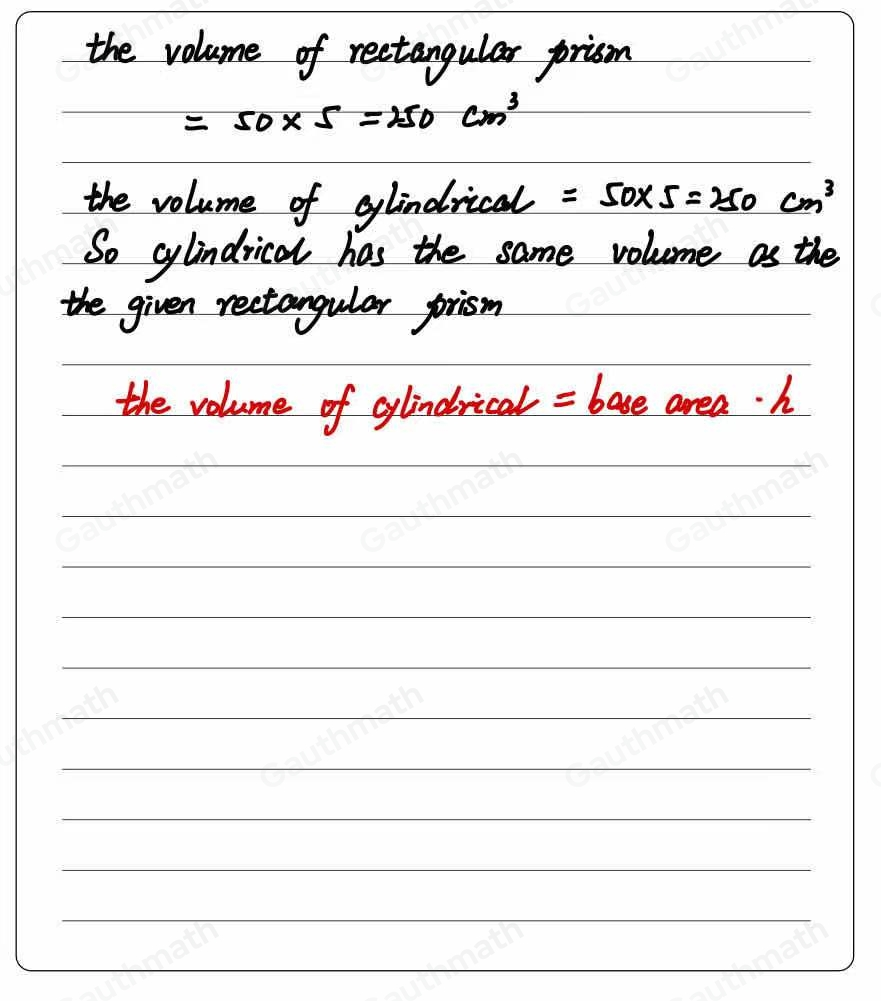 the volume of rectangular prism
= 50 × 5 = 250 cm³
the volume of cylindrical = 50×5=250 cm³
So cylindrical has the same volume as the
the given rectangular prism
the volume of cylindrical = base area · h
Gauthmath